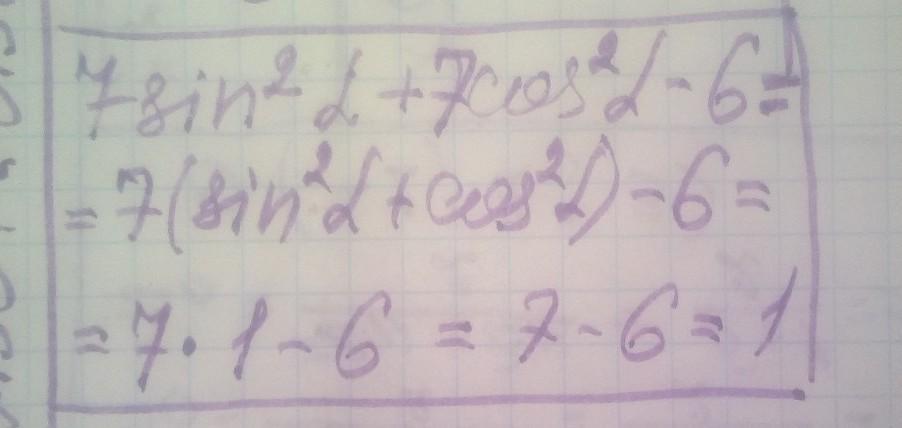 7sin²α + 7cos²α - 6 =
= 7(sin²α + cos²α) - 6 =
= 7 · 1 - 6 = 7 - 6 = 1